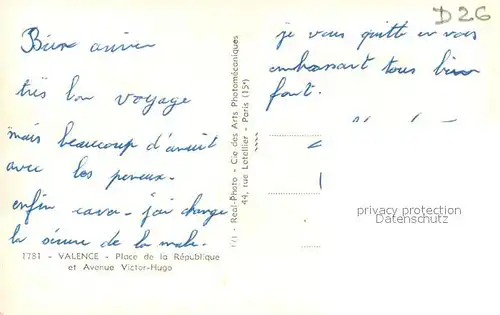 Bien arrivée
très bon voyage
mais beaucoup d'ennuit
avec les
enfin cava - j'ai changé
la de la
1781 - VALENCE - Place de la République
et Avenue Victor-Hugo
Real-Photo - Cie des Arts Photomécaniques
44, rue Letellier - Paris (15e)
D26
je vous quitte en vous
embrassant tous bien
fort.
privacy protection
Datenschutz